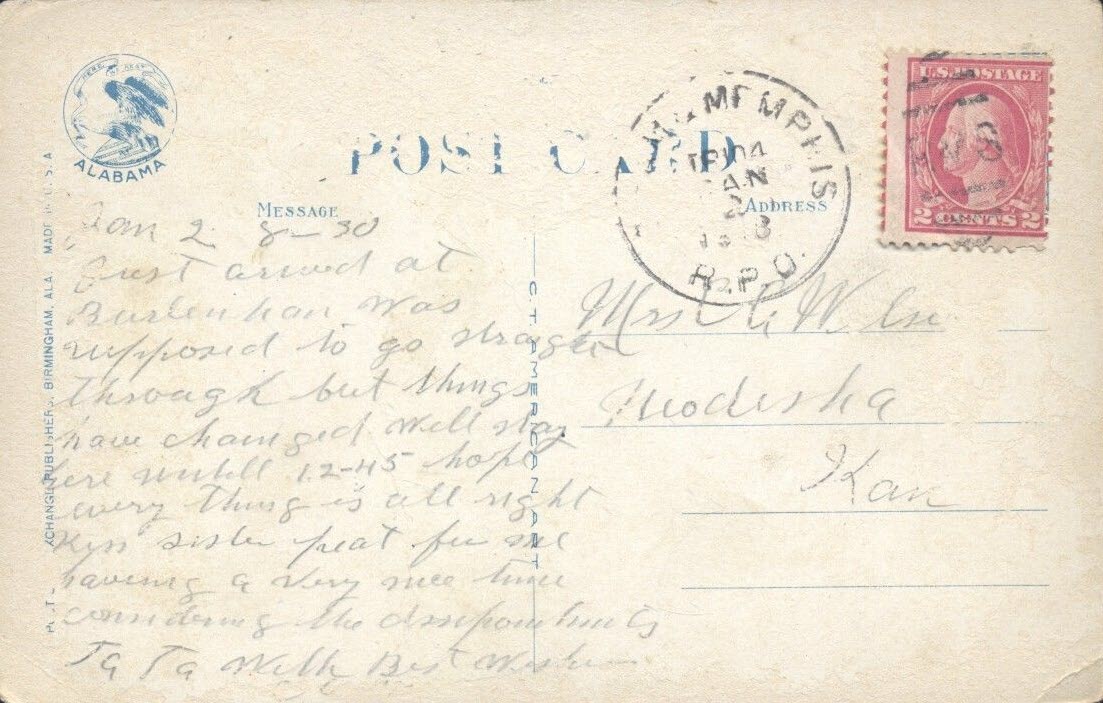 HERE WE REST
ALABAMA
POST CARD
MESSAGE
ADDRESS
MADE IN U.S.A
PUBLISHERS, BIRMINGHAM, ALA
C.T. AMERICAN ART
MEMPHIS
TR 104
JAN
2
R.P.O.
U.S. POSTAGE
2 CENTS 2
Jan 2 8-30
Just arived at
was
supposed to go straight
through but things
have changed will stay
here untill 12-45 hope
every thing is all right
Kiss sister for me
haveing a very nice time
considering the
Ta Ta With Best Wishes
Mrs W
Neodesha
Kan